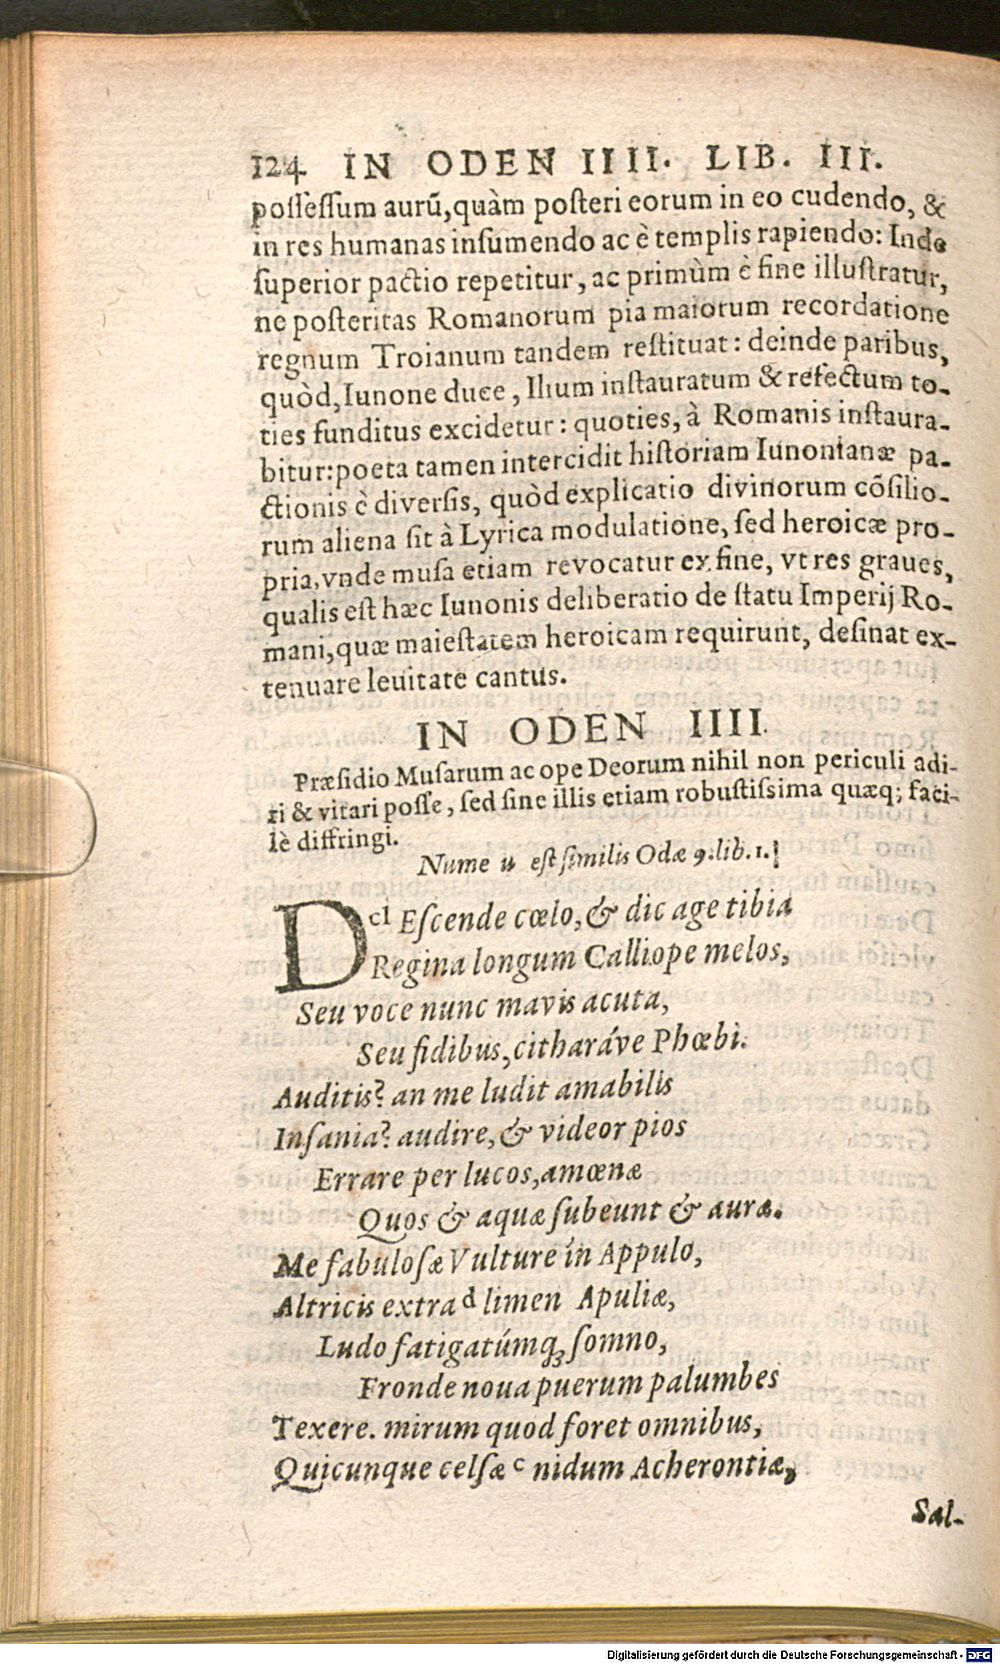 124. IN ODEN IIII. LIB. III.
possessum aurū, quàm posteri eorum in eo cudendo, &
in res humanas insumendo ac è templis rapiendo: Inde
superior pactio repetitur, ac primùm è fine illustratur,
ne posteritas Romanorum pia maiorum recordatione
regnum Troianum tandem restituat: deinde paribus,
quòd, Iunone duce, Ilium instauratum & refectum to-
ties funditus excidetur: quoties, à Romanis instaura-
bitur: poeta tamen intercidit historiam Iunonianæ pa-
ctionis è diversis, quòd explicatio divinorum cõsilio-
rum aliena sit à Lyrica modulatione, sed heroicæ pro-
pria, vnde musa etiam revocatur ex fine, vt res graues,
qualis est hæc Iunonis deliberatio de statu Imperij Ro-
mani, quæ maiestatem heroicam requirunt, desinat ex-
tenuare leuitate cantus.
IN ODEN IIII.
Præsidio Musarum ac ope Deorum nihil non periculi adi-
ri & vitari posse, sed sine illis etiam robustissima quæq; faci-
lè diffringi.
Nume u est similis Odæ 9. lib. 1.
D cl Escende cœlo, & dic age tibia
Regina longum Calliope melos,
Seu voce nunc mavis acuta,
Seu fidibus, citharáve Phœbi.
Auditis? an me ludit amabilis
Insania? audire, & videor pios
Errare per lucos, amœnæ
Quos & aquæ subeunt & auræ.
Me fabulosæ Vulture in Appulo,
Altricis extra d limen Apuliæ,
Ludo fatigatúmq; somno,
Fronde noua puerum palumbes
Texere. mirum quod foret omnibus,
Quicunque celsæ c nidum Acherontiæ,
Sal-
Digitalisierung gefördert durch die Deutsche Forschungsgemeinschaft - DFG